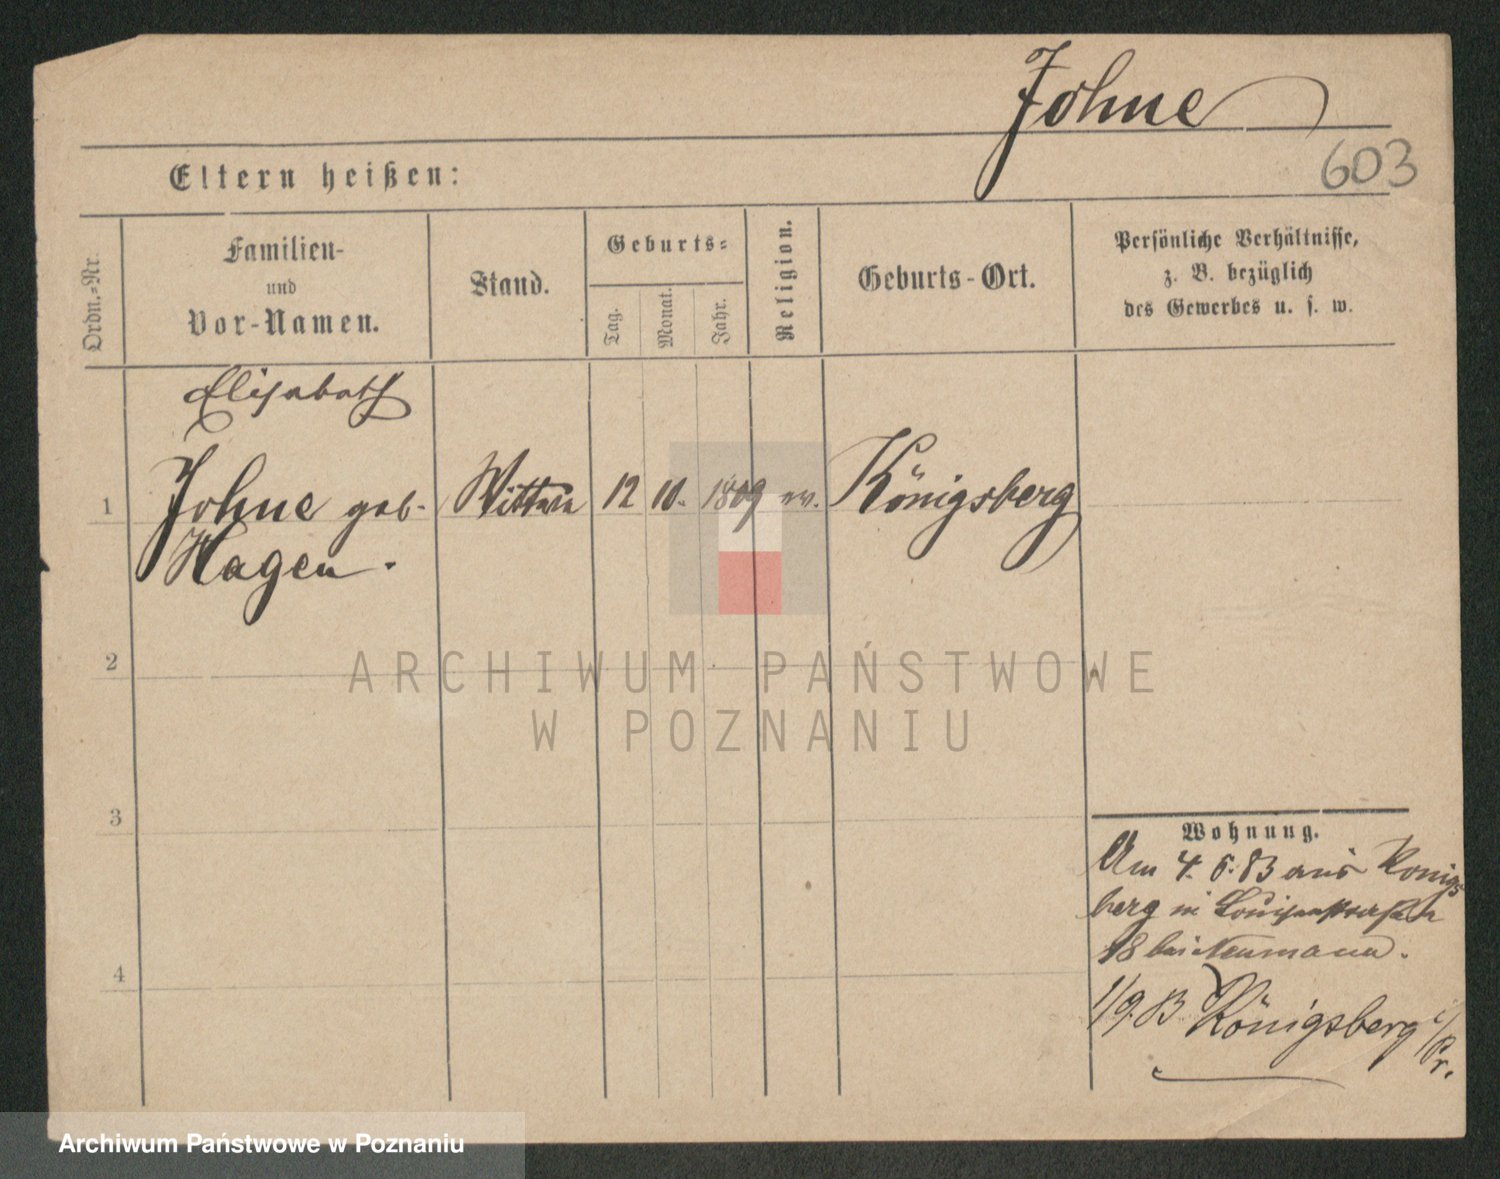 Johne
603
Eltern heißen:
Ordn.-Nr.
Familien-
und
Vor-Namen.
Stand.
Geburts-
Tag.
Monat.
Jahr.
Religion.
Geburts-Ort.
Persönliche Verhältnisse,
z. B. bezüglich
des Gewerbes u. s. w.
Elisabeth
1 Johne geb. Wittwe 12 10. 1809 ev. Königsberg
Hagen.
2
3
4
Wohnung.
Am 4. 5. 83 aus Königs
berg in Louisenstraße
18 bei Neumann.
1/9. 83 Königsberg i/Pr.
ARCHIWUM PAŃSTWOWE
W POZNANIU
Archiwum Państwowe w Poznaniu